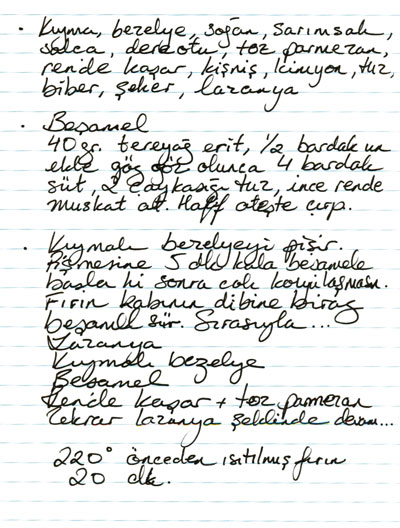 · Kıyma, bezelye, soğan, sarımsak,
salca, dereotu, toz parmezan,
rende kaşar, kişniş, kimyon, tuz,
biber, şeker, lazanya
· Beşamel
40 gr. tereyağ erit, 1/2 bardak un
ekle göz göz olunca 4 bardak
süt, 2 çaykaşığı tuz, ince rende
muskat at. Hafif ateşte çırp.
· Kıymalı bezelyeyi pişir.
Pişmesine 5 dk kala beşamele
başla ki sonra çok koyulaşmasın.
Fırın kabının dibine biraz
beşamel sür. Sırasıyla...
Lazanya
Kıymalı bezelye
Beşamel
Rende kaşar + toz parmezan
Tekrar lazanya şeklinde devam...
220° önceden ısıtılmış fırın
20 dk.